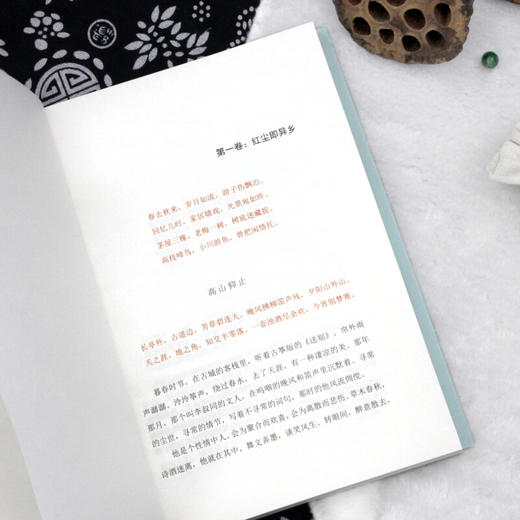 第一卷：红尘即异乡
春去秋来，岁月如流，游子伤飘泊。
回忆儿时，家居嬉戏，光景宛如昨。
茅屋三椽，老梅一树，树底迷藏捉。
高枝啼鸟，小川游鱼，曾把闲情托。
高山仰止
长亭外，古道边，芳草碧连天。晚风拂柳笛声残，夕阳山外山。
天之涯，地之角，知交半零落。一壶浊酒尽余欢，今宵别梦寒。
暮春时节，在古城的客栈里，听着古筝版的《送别》，帘外雨
声潺潺，泠泠筝声，绕过春水，去了天涯，有一种凄凉的美。那年
那月，那个叫李叔同的文人，在呜咽的晚风和笛声里沉默着。寻常
的尘世，寻常的情节，写着不寻常的词句，那时的他风流倜傥。
他是个性情中人，会为聚合而欢喜，会为离散而悲伤。草木春秋，
诗酒迷离，他就在其中，舞文弄墨，谈笑风生。转眼间，醉意散去，